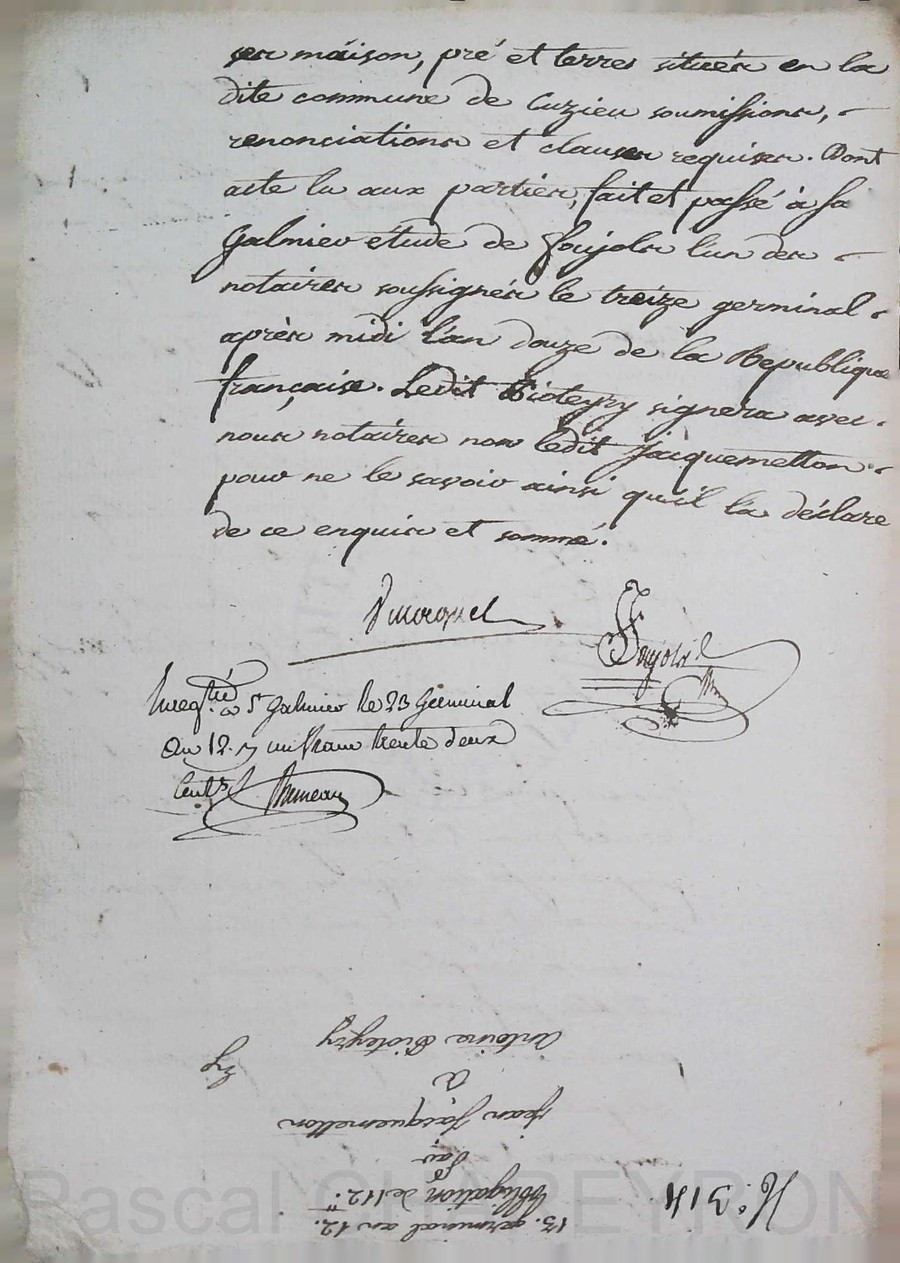 ses maison, pré et terres situées en la
dite commune de Cuzieu soumissions,
renonciations et clauses requises. Dont
acte lu aux parties, fait et passé à St
Galmier étude de Foujols l'un des
notaires soussignés le treize germinal
après midi l'an douze de la Republique
française. Ledit Pioteyry signera avec
nous notaires non ledit jacquemetton
pour ne le savoir ainsi qu'il l'a déclaré
de ce enquis et sommé.
Enregtré à St Galmier le 23 Germinal
An 12. un franc trente deux
Cent.s
N.o 314
13. germinal an 12.
obligation de 112.tt
Par
jean jacquemetton
à
antoine Pioteyry
Pascal CHAPEYRON